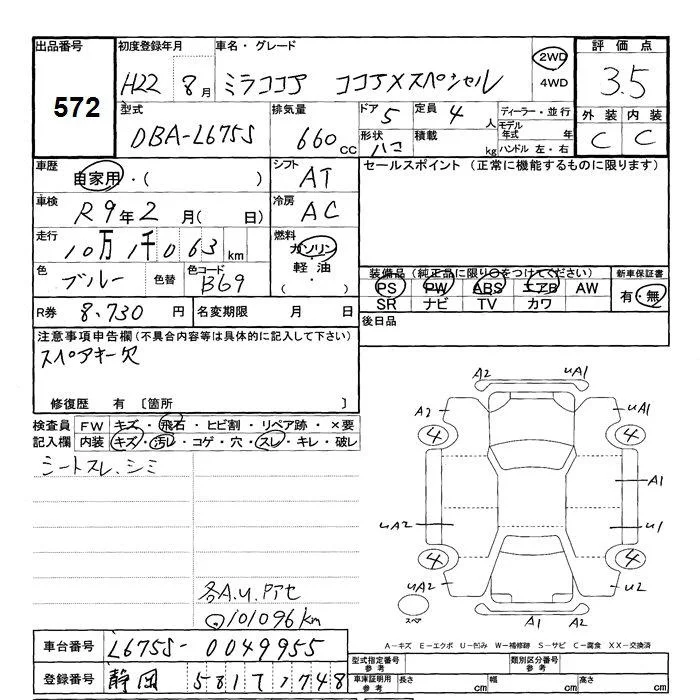 出品番号 初度登録年月 車名・グレード 2WD 評価点
572 H22 8月 ミラココア ココアXスペシャル 4WD 3.5
型式 排気量 ドア 5 定員 4人 ディーラー・並行 外装 内装
DBA-L675S 660cc 形状 ハコ 積載 kg モデル年式 年 C C
ハンドル 左・右
車歴 自家用・( ) シフト AT セールスポイント (正常に機能するものに限ります)
車検 R9年2月( 日) 冷房 AC
走行 10万1千063km 燃料 ガソリン
軽油
・( )
色 ブルー 色替 色コード B69 装備品 (純正品に限り○をつけてください) 新車保証書
PS PW ABS エアB AW 有・無
R券 8,730円 名変期限 月 日 SR ナビ TV カワ
注意事項申告欄(不具合内容等は具体的に記入して下さい) 後日品
スペアキー欠
修復歴 有 〔箇所 〕
検査員 FW キズ・飛石・ヒビ割・リペア跡・×要
記入欄 内装 キズ・汚レ・コゲ・穴・スレ・キレ・破レ
シートスレ、シミ
A2 uA1
A2 uA1
4 4
A1
uA2 u1
4 4
uA2 u2
スペア
A1 A2
各A.u.Pアセ
101096km
A-キズ E-エクボ U-凹み W-補修跡 S-サビ C-腐食 XX-交換済
車台番号 L675S-0049955 型式指定番号 参考 類別区分番号 参考
登録番号 静岡 581 1748 車庫証明用 参考 長さ cm 幅 cm 高さ cm